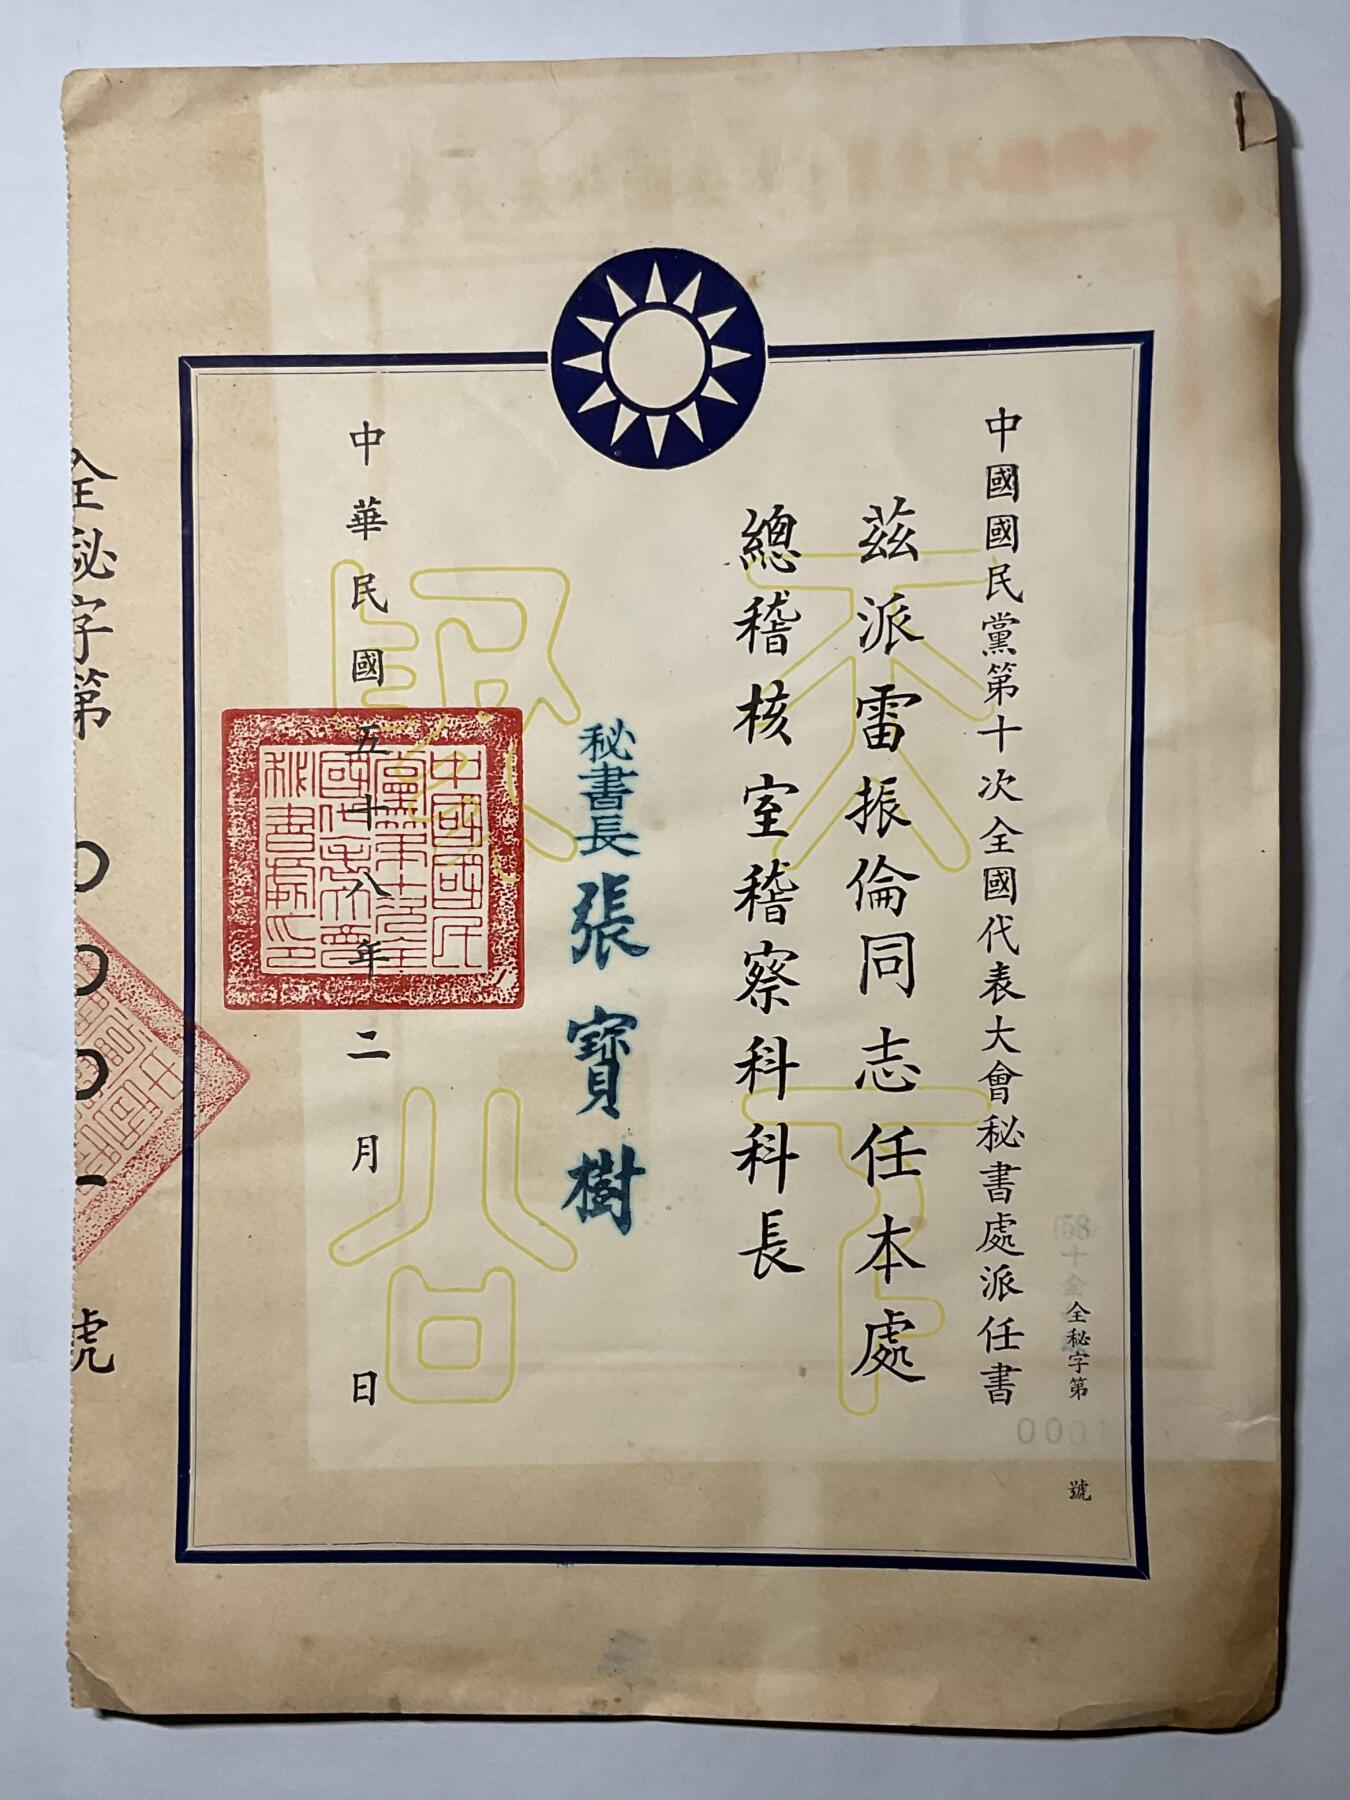 中國國民黨第十次全國代表大會秘書處派任書
全秘字第
號
(58)十全
000
茲派雷振倫同志任本處
總稽核室稽察科科長
秘書長張寶樹
中華民國五十八年二月 日
中國國民
黨第十次全
國代表大會
秘書處印
天下
為公
全秘字第〇〇〇一號